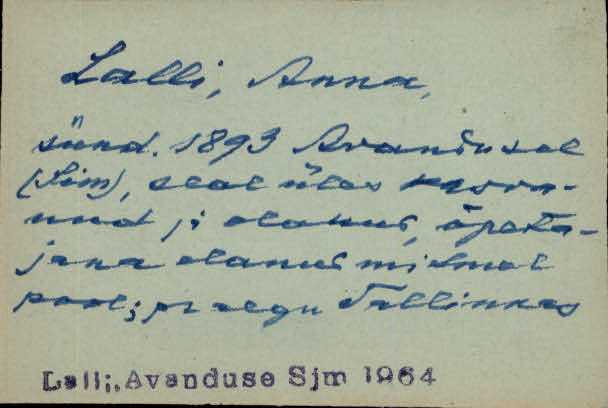 Lalli, Anna,
sünd. 1893 Avandusel
(Sim), seal üles kasva-
nud ja elanud, õpeta-
jana olanud mitmel
pool; praegu Tallinnas
Lalli, Avanduse Sjm 1964